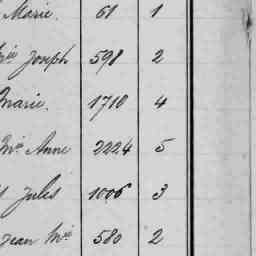 Marie. 61 1
Mie Joseph 598 2
Marie. 1710 4
Mie Anne 2224 5
Jules 1006 3
Jean Mie 580 2